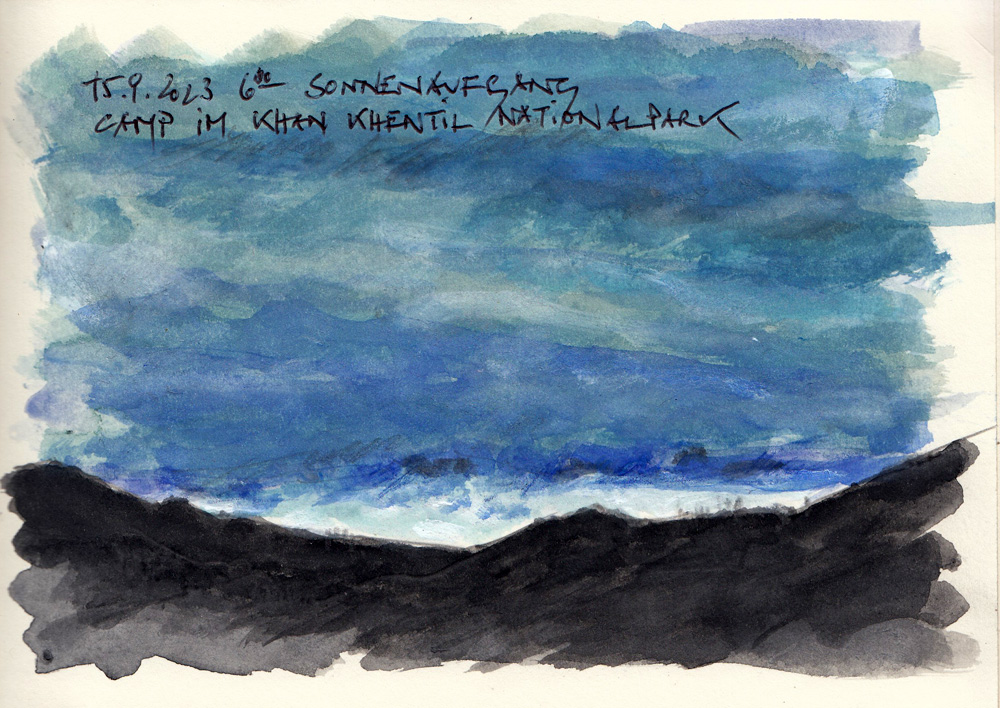 15.9.2023 6°° SONNENAUFGANG
CAMP IM KHAN KHENTII NATIONALPARK